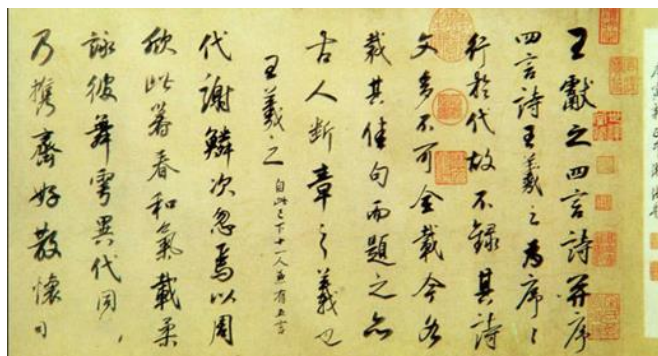 王獻之四言詩并序
四言詩王羲之為序〻
行於代故不錄其詩
文多不可全載今各
裁其佳句而題之亦
古人斷章之義也
王羲之 自此已下十一人並有五言
代謝鱗次忽焉以周
欣此暮春和氣載柔
詠彼舞雩異代同
乃攜齊好散懷